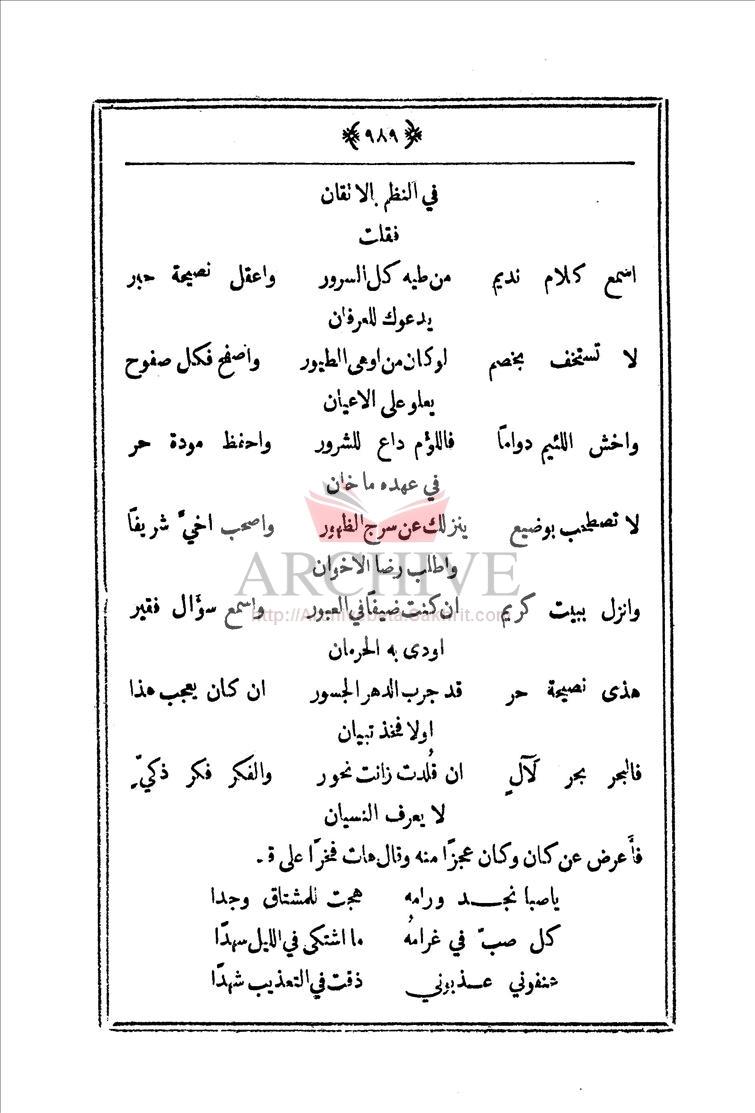 ﴿٩٨٩﴾
في النظم بالاتقان
فقلت
اسمع كلام نديم من طيه كل السرور واعقل نصيحة حبر
يدعوك للعرفان
لا تستخف بخصم لو كان من اوهى الطيور واصفح فكل صفوح
يعلو على الاعيان
واخش اللئيم دواماً فاللؤم داع للشرور واحفظ مودة حر
في عهده ما خان
لا تصطحب بوضيع ينزلك عن سرج الظهور واصحب اخيَّ شريفاً
واطلب رضا الاخوان
ARCHIVE
وانزل ببيت كريم ان كنت ضيفاً في العبور واسمع سؤال فقير
http://Archivebeta.Sakhrit.com
اودى به الحرمان
هذى نصيحة حر قد جرب الدهر الجسور ان كان يعجب هذا
اولا فخذ تبيان
فالبحر بحر لآلٍ ان قُلدت زانت نحور والفكر فكر ذكيٍّ
لا يعرف النسيان
فأعرض عن كان وكان عجزًا منه وقال هات فخرًا على ق.
ياصبا نجد ورامه هجت للمشتاق وجدا
كل صبّ في غرامهُ ما اشتكى في الليل سهدًا
شنفوني عذبوني ذقت في التعذيب شهدًا